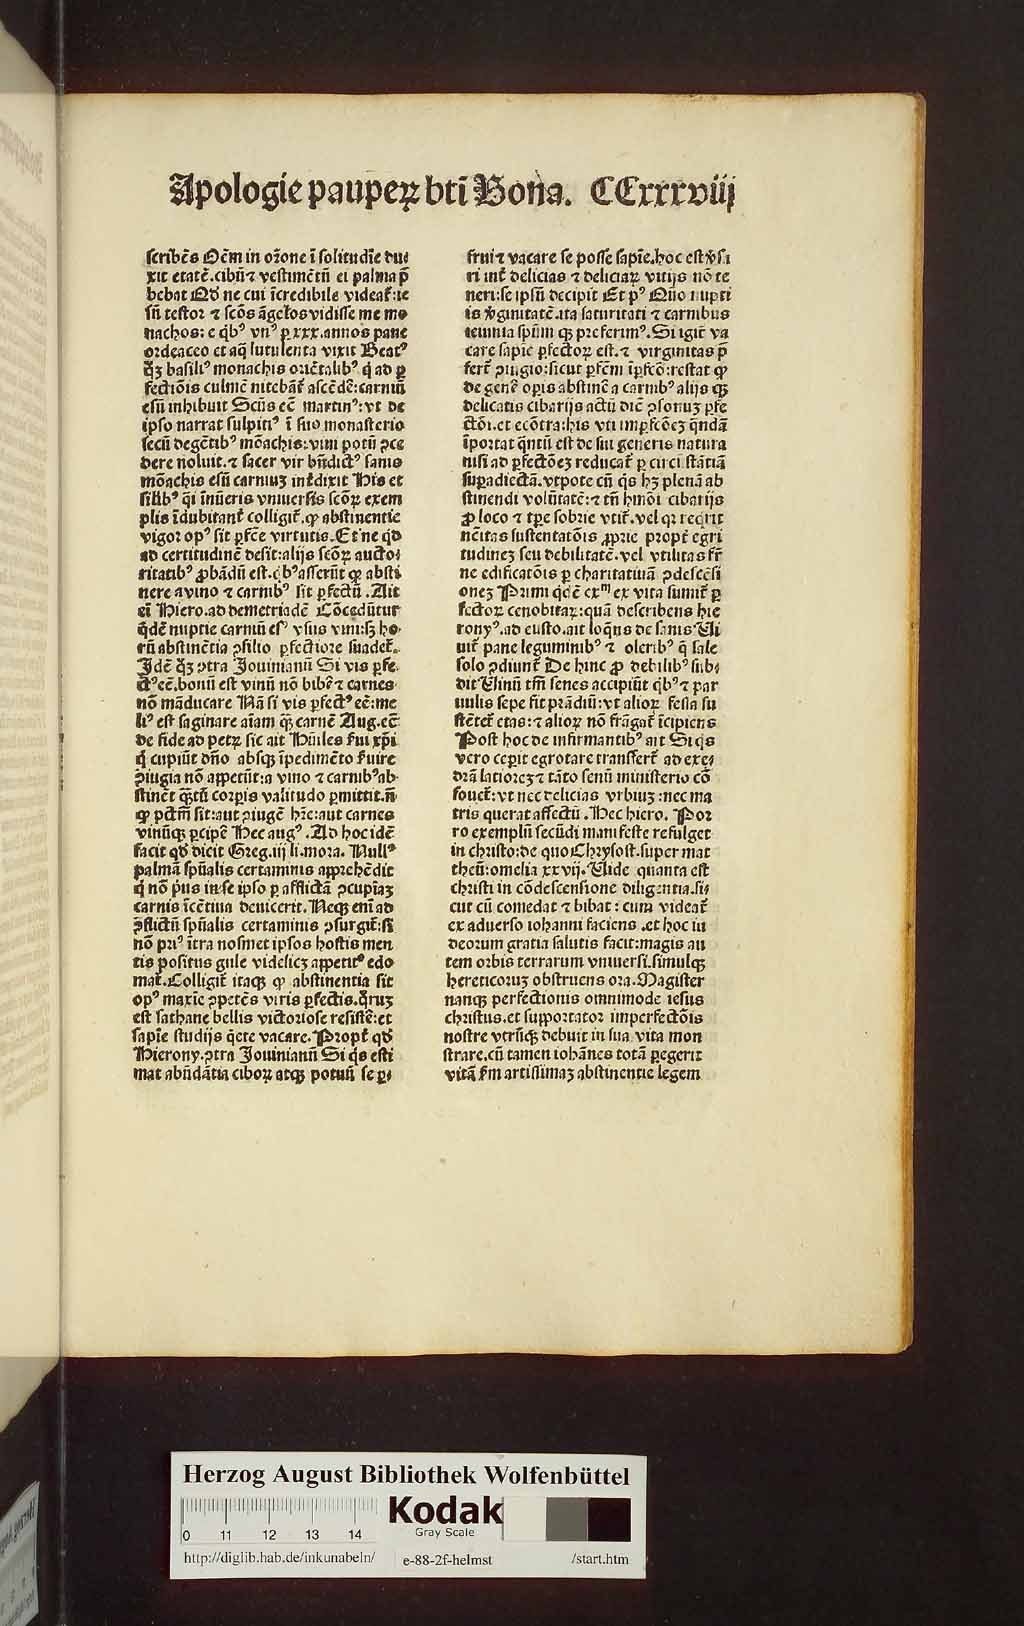 Apologie paupeꝝ bti Bona. CCxxxviij
scribēs Oēm in orōne ī solitudīe du⸗
xit etatē.cibū ⁊ vestimētū ei palma p̄
bebat Qd ne cui īcredibile videat̄:ie
sū testor ⁊ scōs āgelos vidisse me mo
nachos: e qb⁹ vn⁹ ꝑ xxx.annos pane
ordeaceo et aq̄ lutulenta vixit Beat⁹
qꝫ basili⁹ monachis oriētalib⁹ q ad ꝑ
fectiōis culmē nitebāt̄ ascēdē:carniū
esū inhibuit Scūs eē martin⁹: vt de
ipso narrat sulpiti⁹ ī suo monasterio
secū degētib⁹ mōachis:vini potū ꝯce
dere noluit.⁊ sacer vir bn̄dict⁹ sanis
mōachis esū carniuꝫ int̄dixit His et
silib⁹ qi īnūeris vniuersis scōꝝ exem
plis īdubitant̄ colligit̄.ꝙ abstinentie
vigor op⁹ sit ꝑfcē virtutis.Et ne qd
ad certitudinē desit:alijs scōꝝ aucto⸗
ritatib⁹ ꝓbādū est.qb⁹ asserūt ꝙ absti
nere a vino ⁊ carnib⁹ sit ꝑfectū .Ait
eī Hiero.ad demetriadē Cōcedūtur
qdē nuptie carniū es⁹ vsus vini:sꝫ ho⸗
rū abstinētia ꝯsilio ꝑfectiore suadet̄.
Idē qꝫ ꝯtra Jouinianū Si vis ꝑfe⸗
ct⁹ eē.bonū est vinū nō bibē ⁊ carnes
nō māducare Nā si vis ꝑfect⁹ eē:me
li⁹ est saginare aīam qꝫ carnē Aug.eē
de fide ad petꝝ sic ait Hūiles s̄ui xp̄i
q cupiūt dn̄o absqꝫ īpedimēto s̄uire
ꝯiugia nō appetūt:a vino ⁊ carnib⁹ ab⸗
stinēt qꝫtū corpis valitudo ꝑmittit.n̄
ꝙ pctm̄ sit:aut ꝯiugē hr̄e:aut carnes
vinūqꝫ ꝑcipē Hec aug⁹ .Ad hoc idē
facit qd dicit Greg.iij li.mora. Null⁹
palmā spūalis certaminis apprehēdit
q nō pius in se ipso ꝑ afflictā ꝯcupīaꝫ
carnis īcētiua deuicerit.Neqꝫ enī ad
ꝯflictū spūalis certaminis ꝯsurgit̄:si
nō pri⁹ ītra nosmet ipsos hostis men
tis positus gule videlicꝫ appetit⁹ edo
mat̄.Colligit̄ itaqꝫ ꝙ abstinentia sit
op⁹ maxīe ꝯpetēs viris ꝑfectis.qruꝫ
est sathane bellis victoriose resistē:et
sapīe studijs qete vacare.Propt̄ qd
Hierony.ꝯtra Jouinianū Si qs esti
mat abūdātia ciboꝝ atqꝫ potuū se ꝑ⸗
frui ⁊ vacare se posse sapīe.hoc est v̄sa
ri int̄ delicias ⁊ deliciaꝝ vitijs nō te
neri:se ipsū decipit Et p⁹ Quō nupti
is v̄ginitatē.ita saturitati ⁊ carnibus
ieiunia spūm qꝫ preferim⁹.Si igit̄ va
care sapīe ꝑfectoꝝ est.⁊ virginitas p̄
fert̄ ꝯiugio:sicut ꝑfcm īꝑfcō:restat ꝙ
de genē opis abstinē a carnib⁹ alijs qꝫ
delicatis cibarijs actū dic̄ ꝯsonuꝫ ꝑfe
ctōi.et ecōtra:his vti imꝑfcōeꝫ qndā
īportat qntū est de sui generis natura
nisi ad ꝑfectōeꝫ reducat̄ ꝑ circūstātiā
suꝑadiectā.vtpote cū qs hꝫ plenā ab
stinendi volūtatē:⁊ tn̄ hmōi cibarijs
ꝓ loco ⁊ tꝑe sobrie vtit̄.vel qꝛ reqrit
nēitas sustentatōis ꝓprie propt̄ egri
tudineꝫ seu debilitatē.vel vtilitas fr̄
ne edificatōis ꝑ charitatiuā ꝯdescēsi
oneꝫ Primi qdē exᵐ ex vita sumit̄ ꝑ
fectoꝝ cenobitaꝝ:quā describens hie
rony⁹.ad eusto.ait loqns de sanis Ui
uit̄ pane leguminib⁹ ⁊ olerib⁹ q sale
solo ꝯdiunt̄ De hinc ꝓ debilib⁹ sub⸗
dit Uinū tm̄ senes accipiūt qb⁹ ⁊ par
uulis sepe fit prādiū:vt alioꝝ fessa su
stētet̄ etas:⁊ alioꝝ nō frāgat̄ īcipiens
Post hoc de infirmantib⁹ ait Si qs
vero ceꝑit egrotare transfert̄ ad exe⸗
drā latioreꝫ ⁊ tāto senū ministerio cō
fouet̄:vt nec delicias vrbiuꝫ :nec ma
tris querat affectū .Hec hiero. Por
ro exemplū secūdi manifeste refulget
in christo:de quo Chrysost.super mat
theū:omelia xxvij.Uide quanta est
christi in cōdescensione diligentia.si⸗
cut cū comedat ⁊ bibat : cum videat̄
ex aduerso iohanni faciens .et hoc iu
deorum gratia salutis facit:magis au
tem orbis terrarum vniuersi.simulqꝫ
hereticoruꝫ obstruens ora.Magister
nanqꝫ perfectionis omnimode iesus
christus.et supportator imperfectōis
nostre vtrūqꝫ debuit in sua vita mon
strare.cū tamen iohānes totā ꝑegerit
vitā s̄m artissimaꝫ abstinentie legem
Herzog August Bibliothek Wolfenbüttel
Kodak
Gray Scale
0 11 12 13 14
http://diglib.hab.de/inkunabeln/ e-88-2f-helmst /start.htm